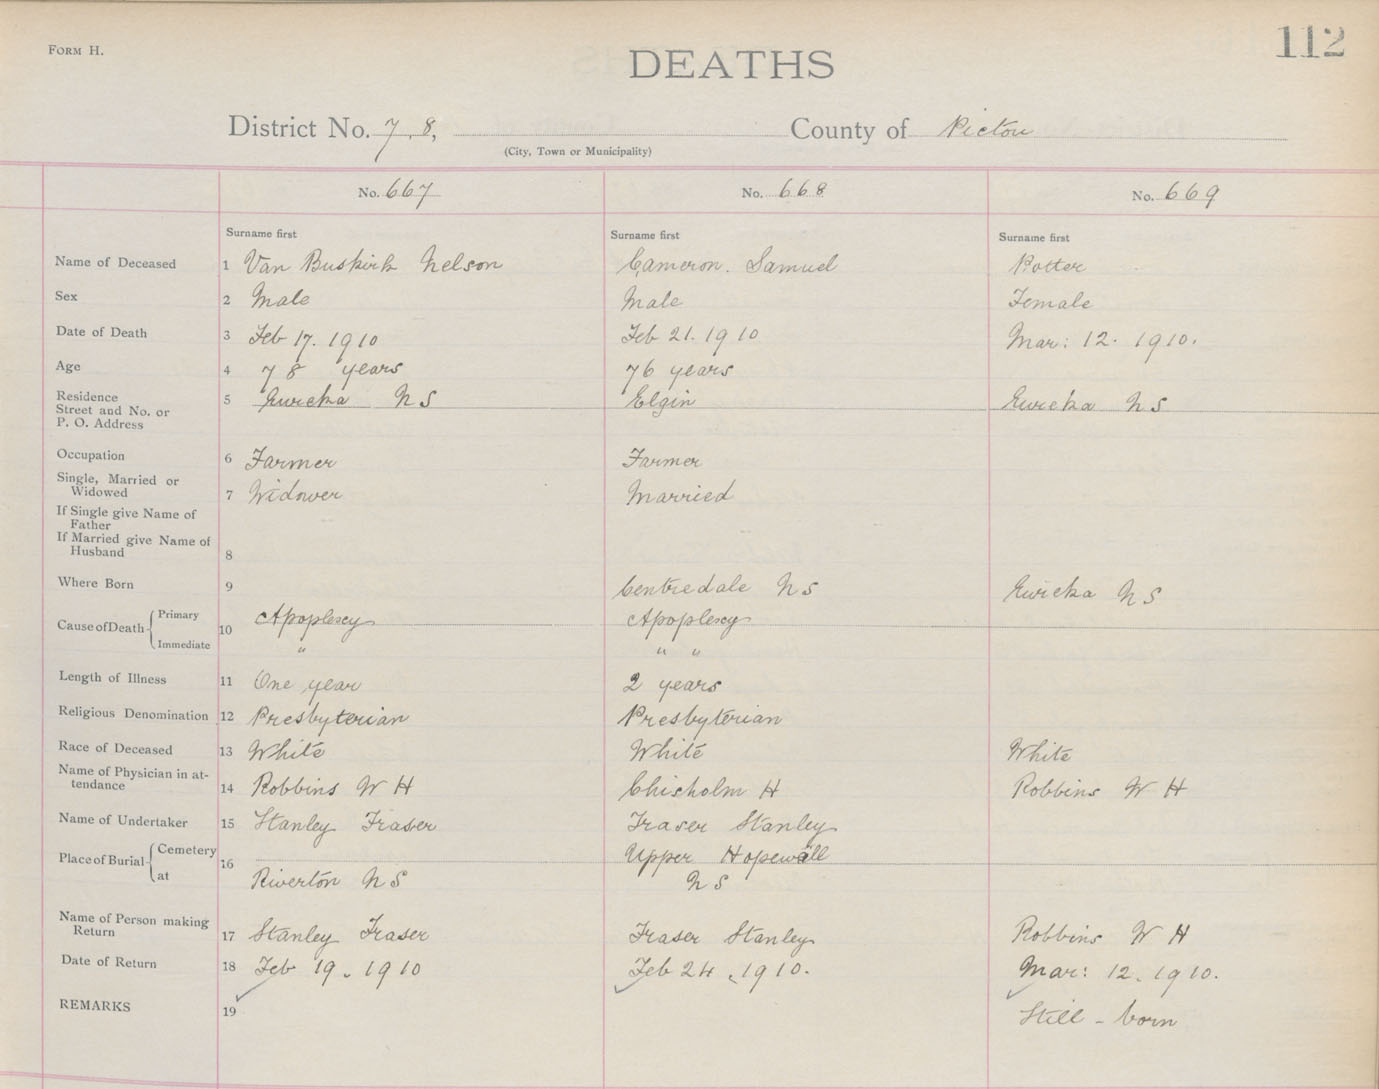 FORM H.
DEATHS
112
District No. 7.8, County of Pictou
(City, Town or Municipality)
No. 667 No. 668 No. 669
Surname first Surname first Surname first
Name of Deceased 1 Van Buskirk Nelson Cameron. Samuel Potter
Sex 2 Male Male Female
Date of Death 3 Feb 17. 1910 Feb 21. 1910 Mar: 12. 1910.
Age 4 78 years 76 years
Residence 5 Eureka N S Elgin Eureka N S
Street and No. or
P. O. Address
Occupation 6 Farmer Farmer
Single, Married or
Widowed 7 Widower Married
If Single give Name of
Father
If Married give Name of
Husband 8
Where Born 9 Centredale N S Eureka N S
Cause of Death Primary 10 Apoplexy Apoplexy
Immediate " " "
Length of Illness 11 One year 2 years
Religious Denomination 12 Presbyterian Presbyterian
Race of Deceased 13 White White White
Name of Physician in at-
tendance 14 Robbins W H Chisholm H Robbins W H
Name of Undertaker 15 Stanley Fraser Fraser Stanley
Place of Burial Cemetery 16 Upper Hopewell
at Riverton N S N S
Name of Person making
Return 17 Stanley Fraser Fraser Stanley Robbins W H
Date of Return 18 Feb 19. 1910 Feb 24. 1910. Mar: 12. 1910.
REMARKS 19 Still - born